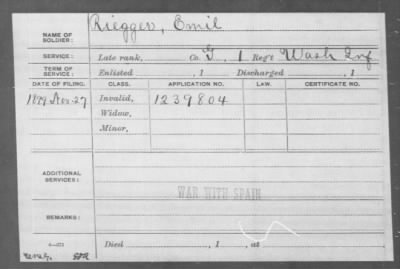 NAME OF SOLDIER: Riegger, Emil
SERVICE: Late rank, Co. G, 1 Reg't Wash Inf
TERM OF SERVICE: Enlisted , 1 Discharged , 1
DATE OF FILING. CLASS. APPLICATION NO. LAW. CERTIFICATE NO.
1899 Nov. 27 Invalid, 1239804
Widow,
Minor,
ADDITIONAL SERVICES:
WAR WITH SPAIN
REMARKS:
Died , 1 , at